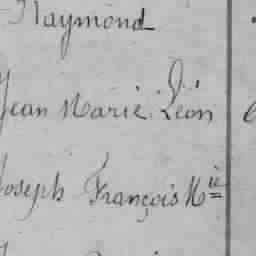 Raymond
Jean Marie Léon
Joseph François Mie